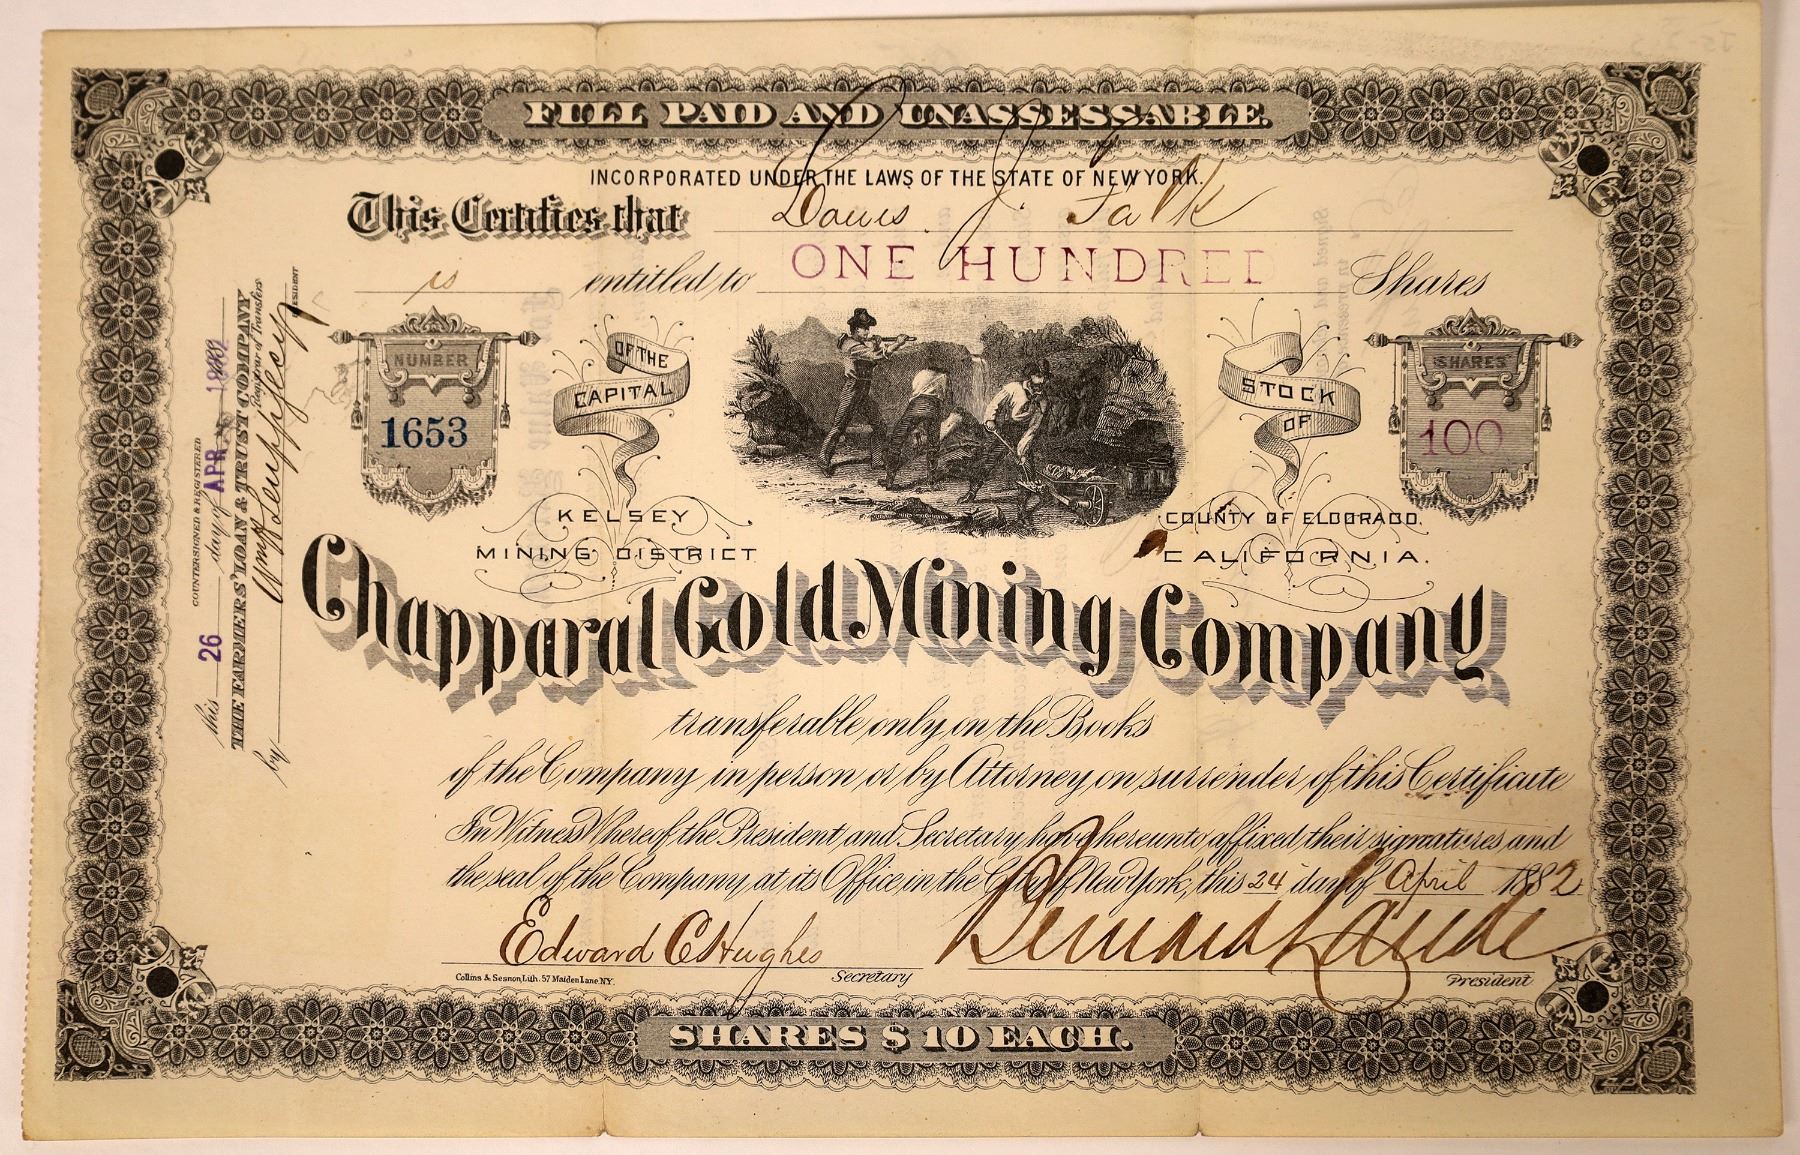 FULL PAID AND UNASSESSABLE.
INCORPORATED UNDER THE LAWS OF THE STATE OF NEW YORK.
This Certifies that Louis J. Falk
is entitled to ONE HUNDRED Shares
NUMBER
1653
OF THE
CAPITAL
STOCK
OF
SHARES
100
KELSEY
MINING DISTRICT
COUNTY OF ELDORADO.
CALIFORNIA.
Chapparal Gold Mining Company
transferable only on the Books
of the Company in person or by Attorney on surrender of this Certificate
In Witness Whereof the President and Secretary have hereunto affixed their signatures and
the seal of the Company at its Office in the City of New York, this 24 day of April 1882
Edward C Hughes
Secretary
President
Collins & Sesnon, Lith. 57 Maiden Lane N.Y.
SHARES $10 EACH.
COUNTERSIGNED & REGISTERED
this 26 day of APR 1882
THE FARMERS' LOAN & TRUST COMPANY
Registrar of Transfers
by
PRESIDENT